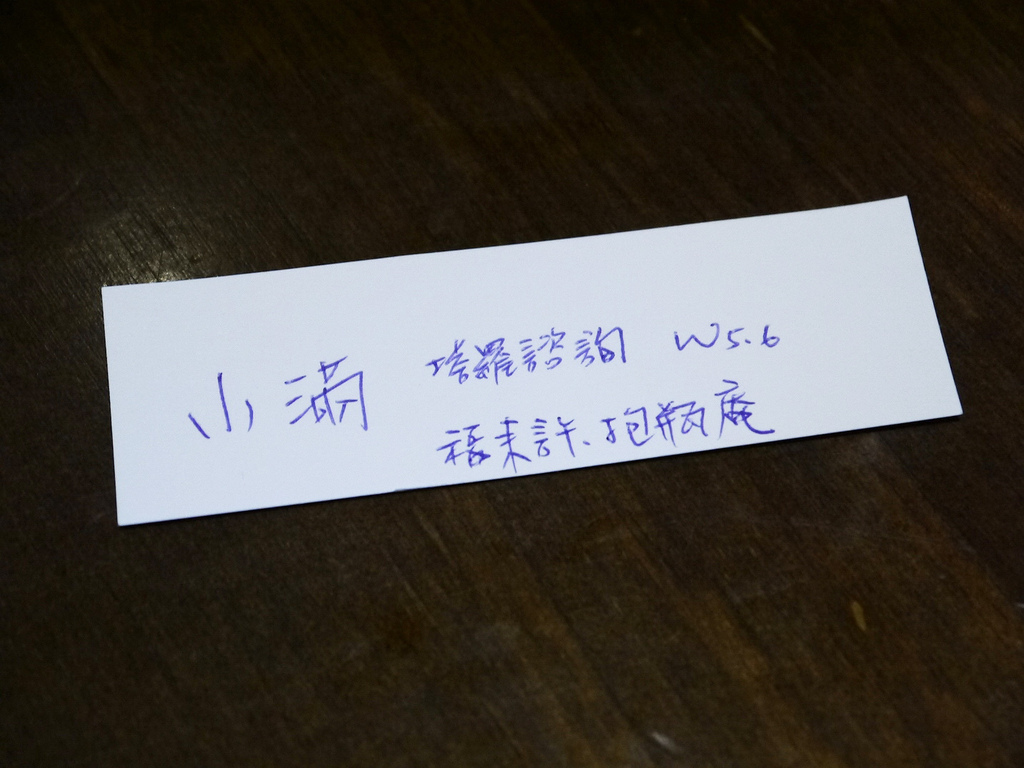 小滿
塔羅諮詢 W5.6
福来許、抱瓶庵